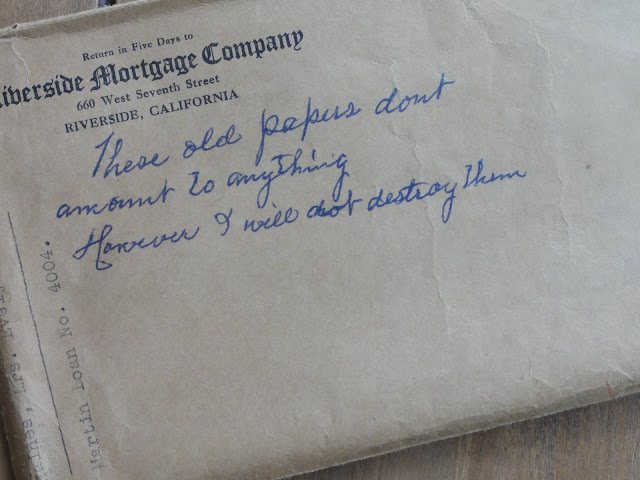 Return in Five Days to
Riverside Mortgage Company
660 West Seventh Street
RIVERSIDE, CALIFORNIA
These old papers dont
amount to anything
However I will not destroy them
Martin Loan No. 4004.